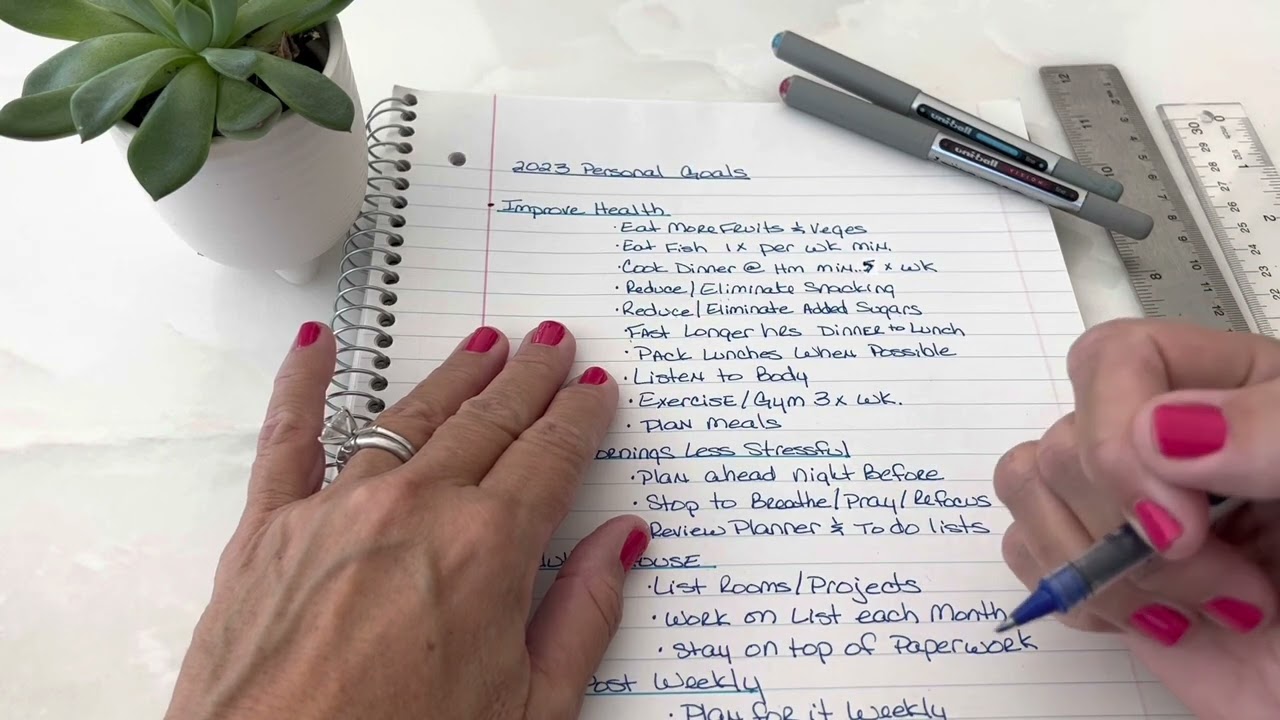 2023 Personal Goals
Improve Health
· Eat More Fruits & Veges
· Eat Fish 1x per wk min.
· Cook Dinner @ Hm min. 5 x wk
· Reduce/Eliminate Snacking
· Reduce/Eliminate Added Sugars
· Fast Longer hrs Dinner to Lunch
· Pack Lunches When Possible
· Listen to Body
· Exercise/Gym 3x wk.
· Plan Meals
Less Stressful
· Plan ahead night Before
· Stop to Breathe/Pray/Refocus
Review Planner & To do lists
· List Rooms/Projects
· Work on List each Month
· Stay on top of Paperwork
Post Weekly
· Plan for it Weekly
uni-ball
uni-ball
VISION
12
11
10
8
30
29
28
27
25
24
23
0
1
2